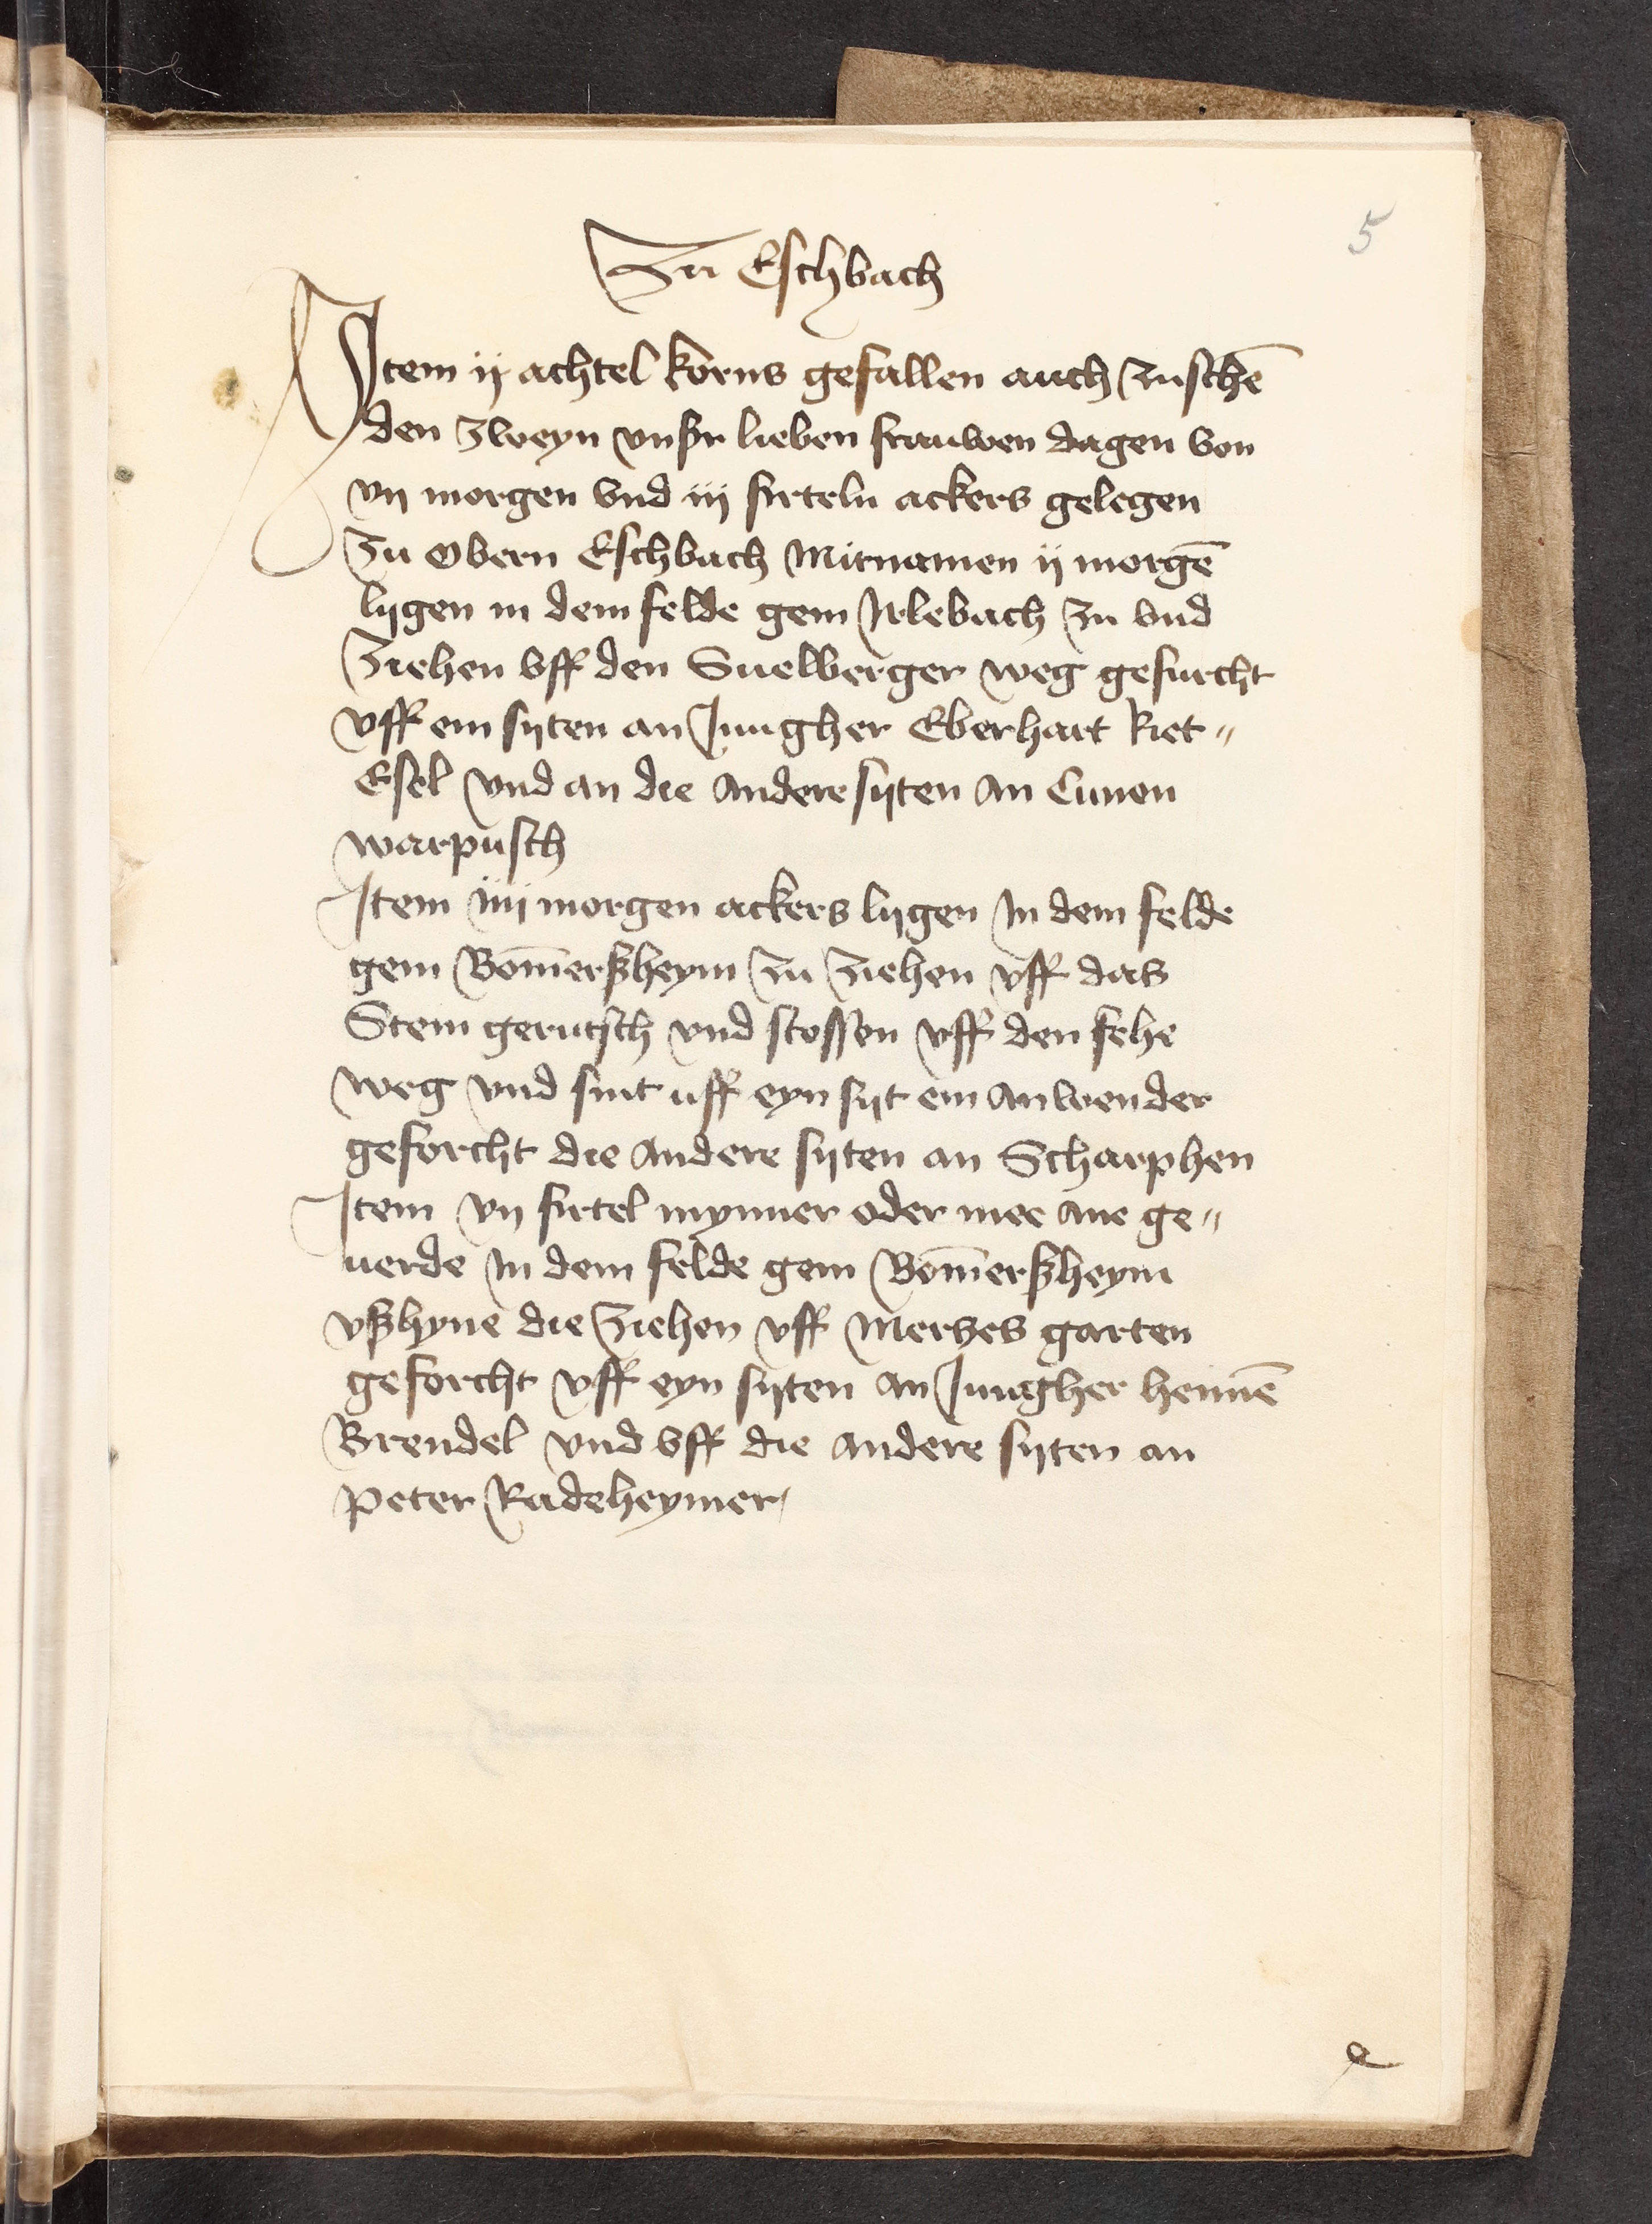 5
Zu Eschbach
Item ij achtel korns gefallen auch zuschē
den zweyn vnser lieben frauwen dagen von
vij morgen vnd iij firteln ackers gelegen
zu Obern Eschbach Mitnamen ij morgē
lygen in dem felde gein Irlebach zu vnd
ziehen vff den Suelberger weg gefurcht
vff ein syten an Jungher Eberhart Riet„
Esel vnd an die andere syten an Cunen
warpusch
Item iiij morgen ackers lygen In dem felde
gein Bom̄erßheym zu ziehen vff das
Stein gerutsch vnd stossen vff den fehe
weg vnd sint uff eyn syt ein anwender
geforcht die andere syten an Scharphen
Item vij firtel mynner oder mee ane ge„
uerde In dem felde gein Bom̄erßheym
vßhyne die ziehen vff Merszes garten
geforcht vff eyn syten an Jungher hennē
Brendel vnd vff die andere syten an
Peter Radeheymer
e